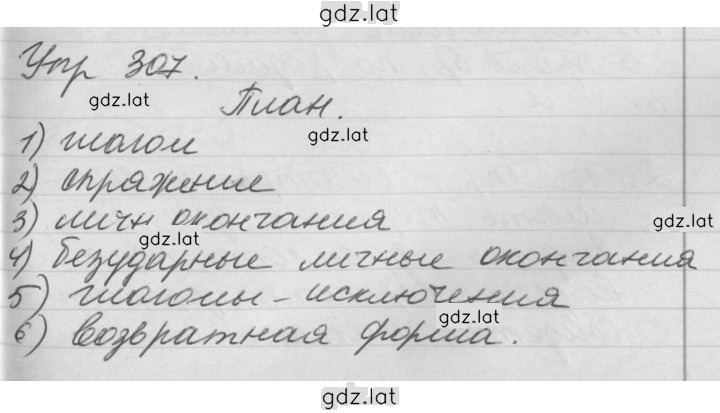 gdz.lat
Упр 307.
gdz.lat
План.
gdz.lat
1) глагол
2) спряжение
3) личн окончания
gdz.lat
gdz.lat
4) безударные личные окончания
5) глаголы - исключения
gdz.lat
6) возвратная форма.
gdz.lat